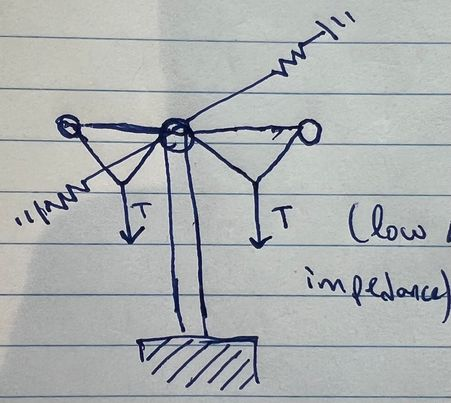 T
T
(low
impedance)